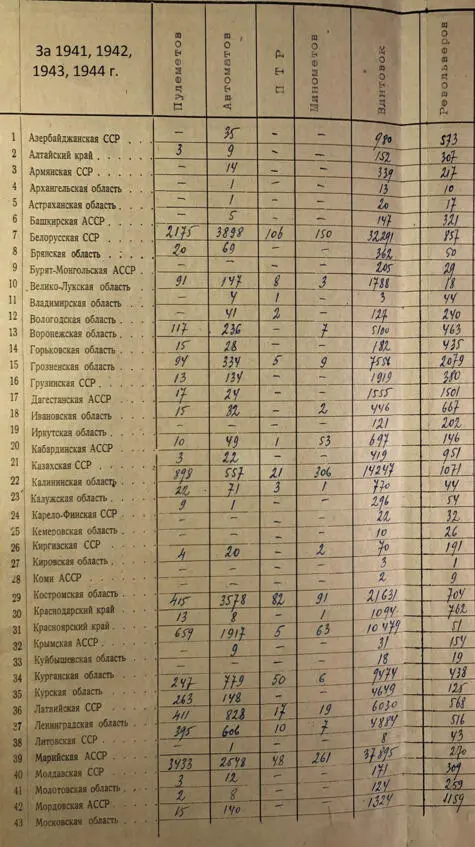 За 1941, 1942,
1943, 1944 г.
Пулеметов Автоматов ПТР Минометов Винтовок Револьверов
1 Азербайджанская ССР . . . – 35 – – 980 573
2 Алтайский край . . . . . . 3 9 – – 152 307
3 Армянская ССР . . . . . – 14 – – 339 217
4 Архангельская область . . . – 1 – – 13 10
5 Астраханская область . . . – 1 – – 20 17
6 Башкирская АССР . . . . – 5 – – 147 321
7 Белорусская ССР . . . . 2175 3898 106 150 32291 857
8 Брянская область . . . . . 20 69 – – 362 50
9 Бурят-Монгольская АССР . . – – – – 205 29
10 Велико-Лукская область . . . 91 147 8 3 1788 18
11 Владимирская область . . . – 4 1 – 3 44
12 Вологодская область . . . . – 41 2 – 127 240
13 Воронежская область . . . . 117 236 – 7 5100 463
14 Горьковская область . . . . 15 28 – – 182 435
15 Грозненская область . . . . 94 334 5 9 7556 2079
16 Грузинская ССР . . . . . 13 134 – – 1919 380
17 Дагестанская АССР . . . . 17 24 – – 1555 1501
18 Ивановская область . . . . 15 82 – 2 446 667
19 Иркутская область . . . . – – – – 121 202
20 Кабардинская АССР . . . . 10 49 1 53 697 146
21 Казахская ССР . . . . . . 3 22 – – 419 951
22 Калининская область . . . . 898 557 21 306 14247 1071
23 Калужская область . . . . . 22 71 3 1 770 44
24 Карело-Финская ССР . . . . 9 1 – – 296 54
25 Кемеровская область . . . . – – – – 22 32
26 Киргизская ССР . . . . . – – – – 10 26
27 Кировская область . . . . . 4 20 – 2 70 191
28 Коми АССР . . . . . . . – – – – 3 1
29 Костромская область . . . . – – – – 2 9
30 Краснодарский край . . . . 415 3578 82 91 21631 704
31 Красноярский край . . . . . 13 8 – 1 1094 762
32 Крымская АССР . . . . . 659 1917 5 63 10479 51
33 Куйбышевская область . . . – 9 – – 31 154
34 Курганская область . . . . – – – – 18 19
35 Курская область . . . . . 247 779 50 6 9474 438
36 Латвийская ССР . . . . . 263 148 – – 4649 125
37 Ленинградская область . . . 411 828 17 19 6030 568
38 Литовская ССР . . . . . . 395 606 10 7 4884 516
39 Марийская АССР . . . . . – 1 – – 8 43
40 Молдавская ССР . . . . . 3433 2548 48 261 37895 270
41 Молотовская область . . . . 3 12 – – 171 309
42 Мордовская АССР . . . . . 2 8 – – 124 259
43 Московская область . . . . 15 140 – – 1324 1159